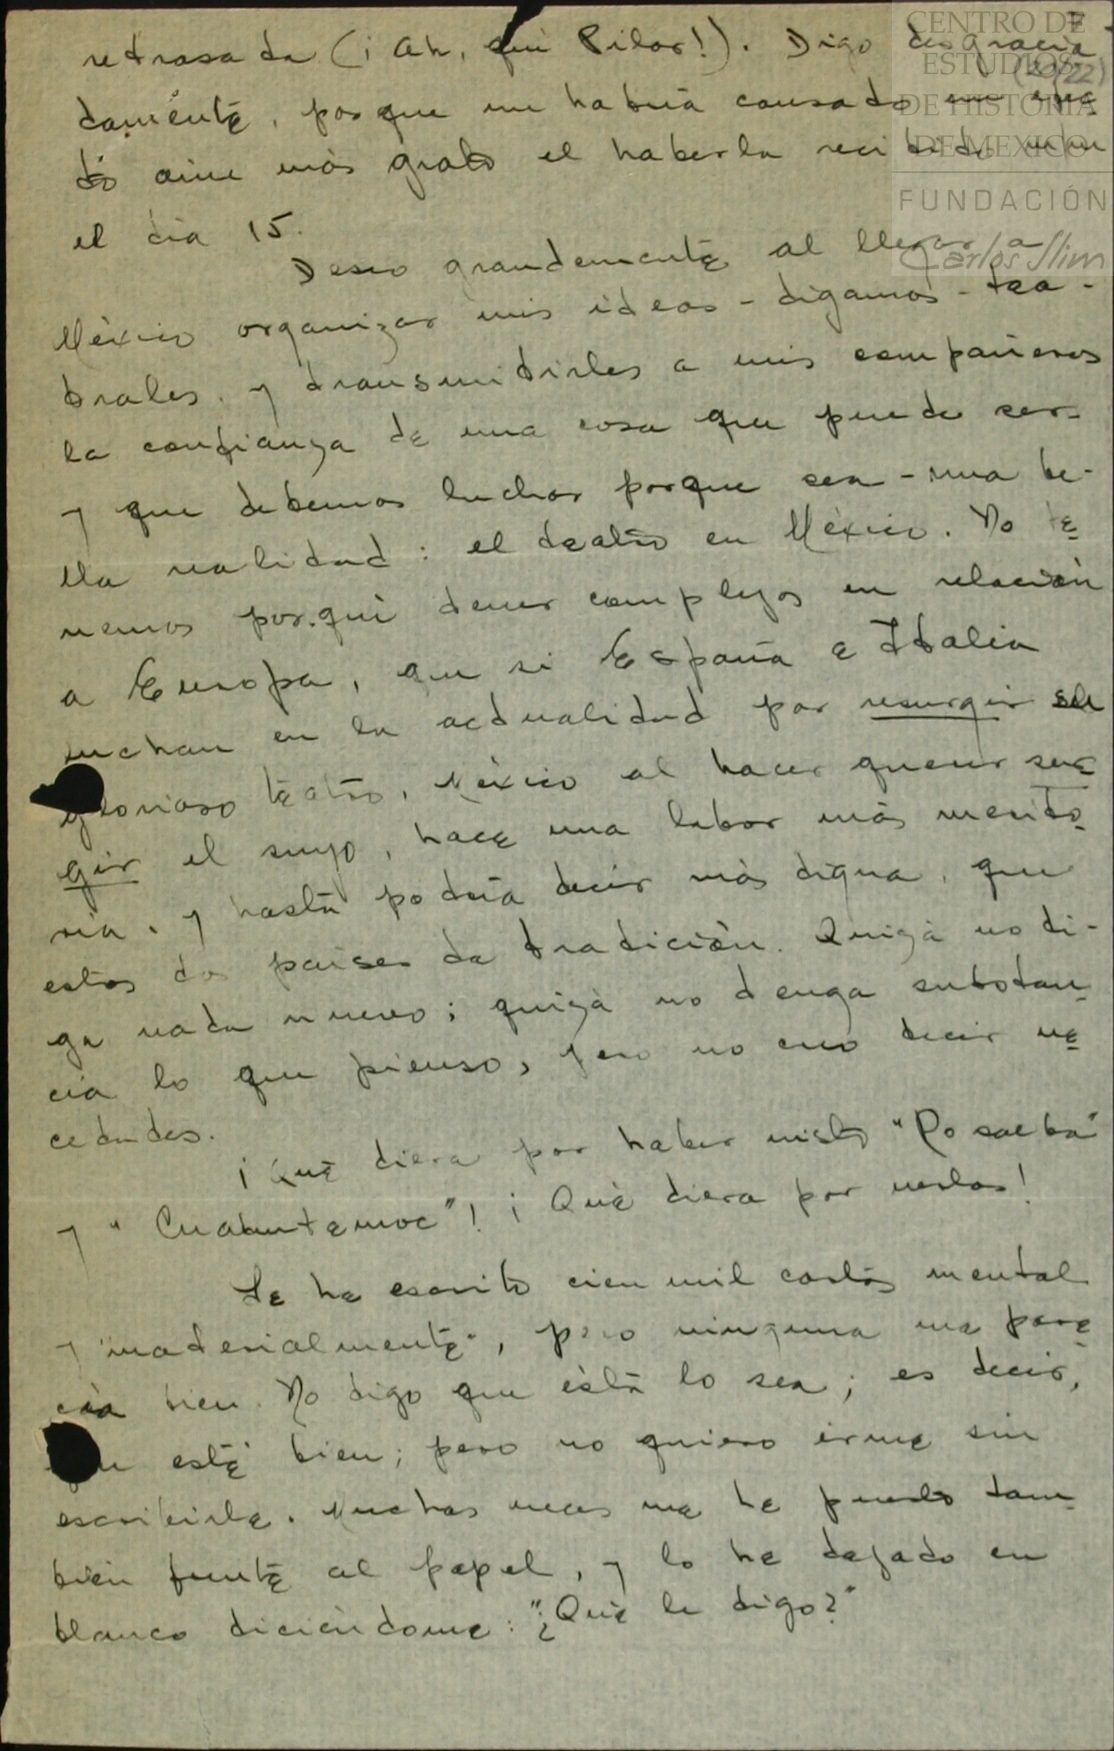 retrasada (¡Ah, qué Pilar!). Digo desgracia-
(20/22)
damente, porque me habría causado un efec
to aún más grato el haberla recibido
el día 15.
Deseo grandemente al llegar a
México organizar mis ideas - digamos - tea-
trales, y transmitirles a mis compañeros
la confianza de una cosa que puede ser-
y que debemos luchar porque sea - una be-
lla realidad: el teatro en México. No te
nemos por.qué tener complejos en relación
a Europa, que si España e Italia
luchan en la actualidad por resurgir su
glorioso teatro, México al hacer querer sur
gir el suyo, hace una labor más merito
ria, y hasta podría decir más digna, que
estos dos países de tradición. Quizá no di-
ga nada nuevo; quizá no tenga substan
cia lo que pienso, pero no creo decir ne
cedades.
¡Qué diera por haber visto "Rosalba"
y "Cuauhtemoc"! ¡Qué diera por verlos!
Le he escrito cien mil cartas mental
y "materialmente", pero ninguna me pare
cía bien. No digo que ésta lo sea; es decir,
que esté bien; pero no quiero irme sin
escribirle. Muchas veces me he puesto tam
bién frente al papel, y lo he dejado en
blanco diciéndome: "¿Qué le digo?"
CENTRO DE
ESTUDIOS
DE HISTORIA
DE MEXICO
FUNDACIÓN
Carlos Slim